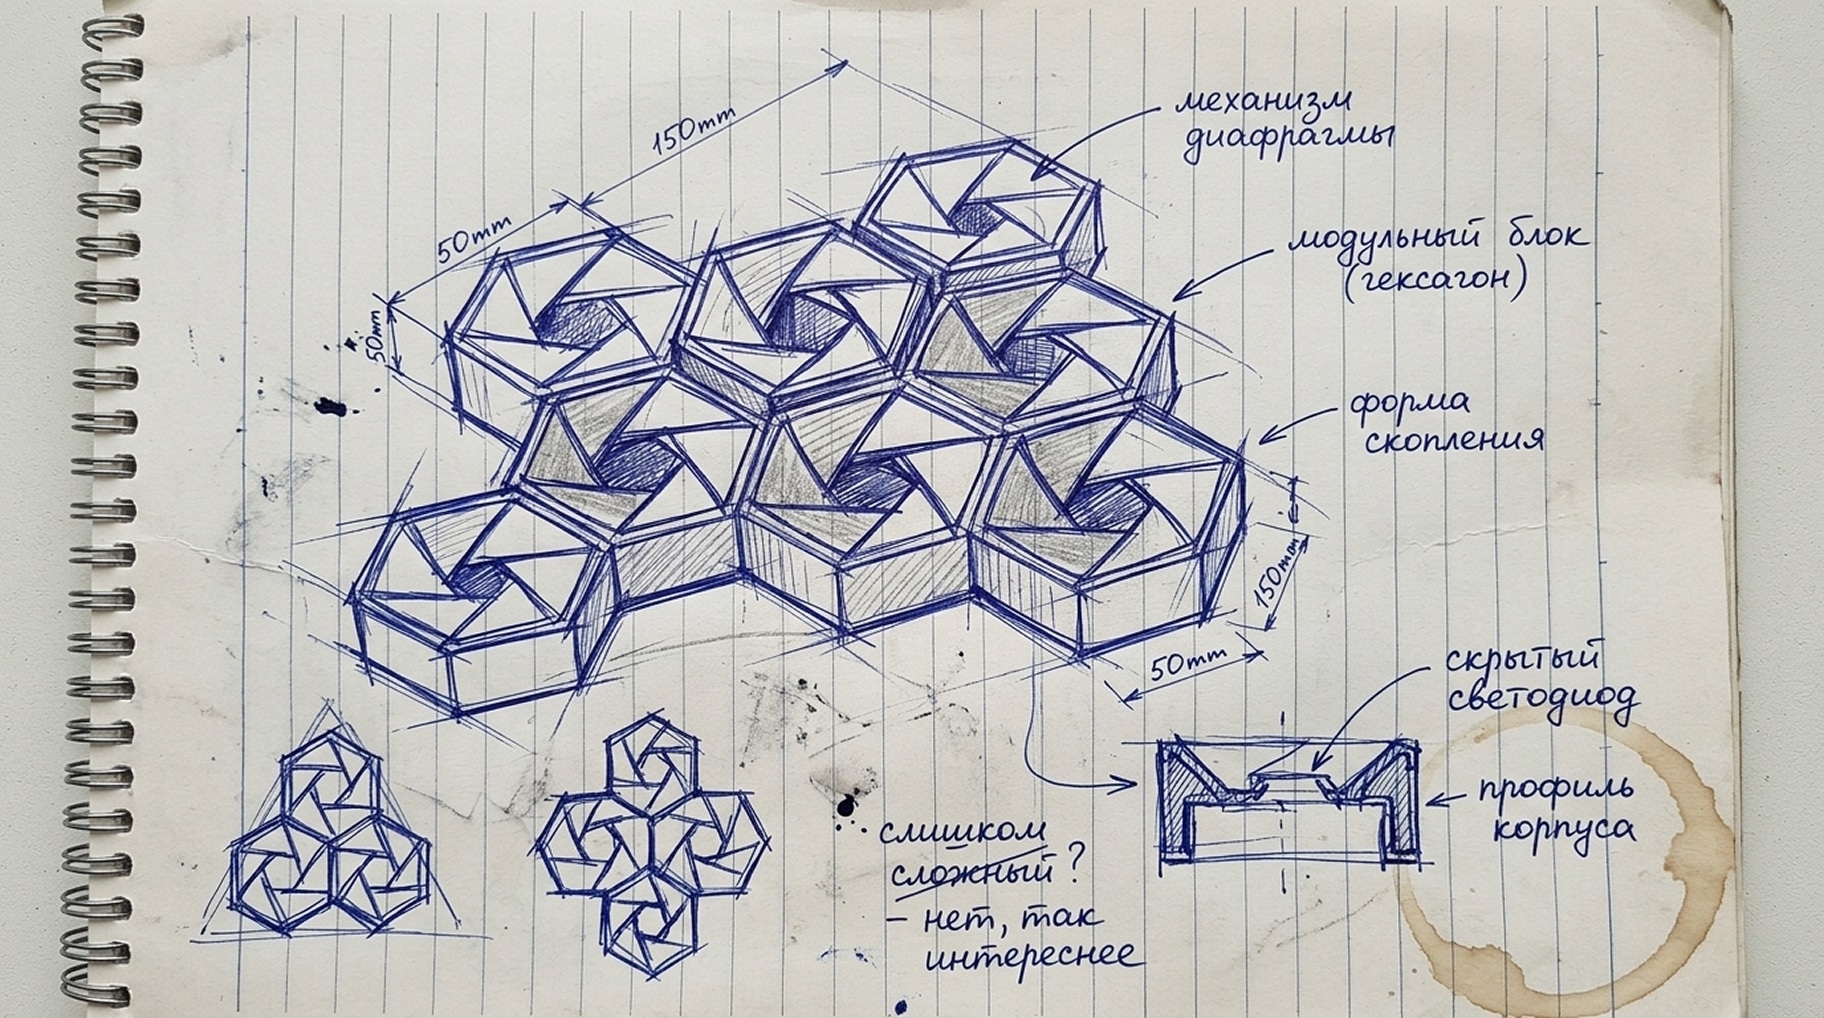 150mm
механизм
диафрагмы
50mm
модульный блок
(гексагон)
50mm
форма
скопления
150mm
50mm
скрытый
светодиод
профиль
корпуса
слишком
сложный?
– нет, так
интереснее